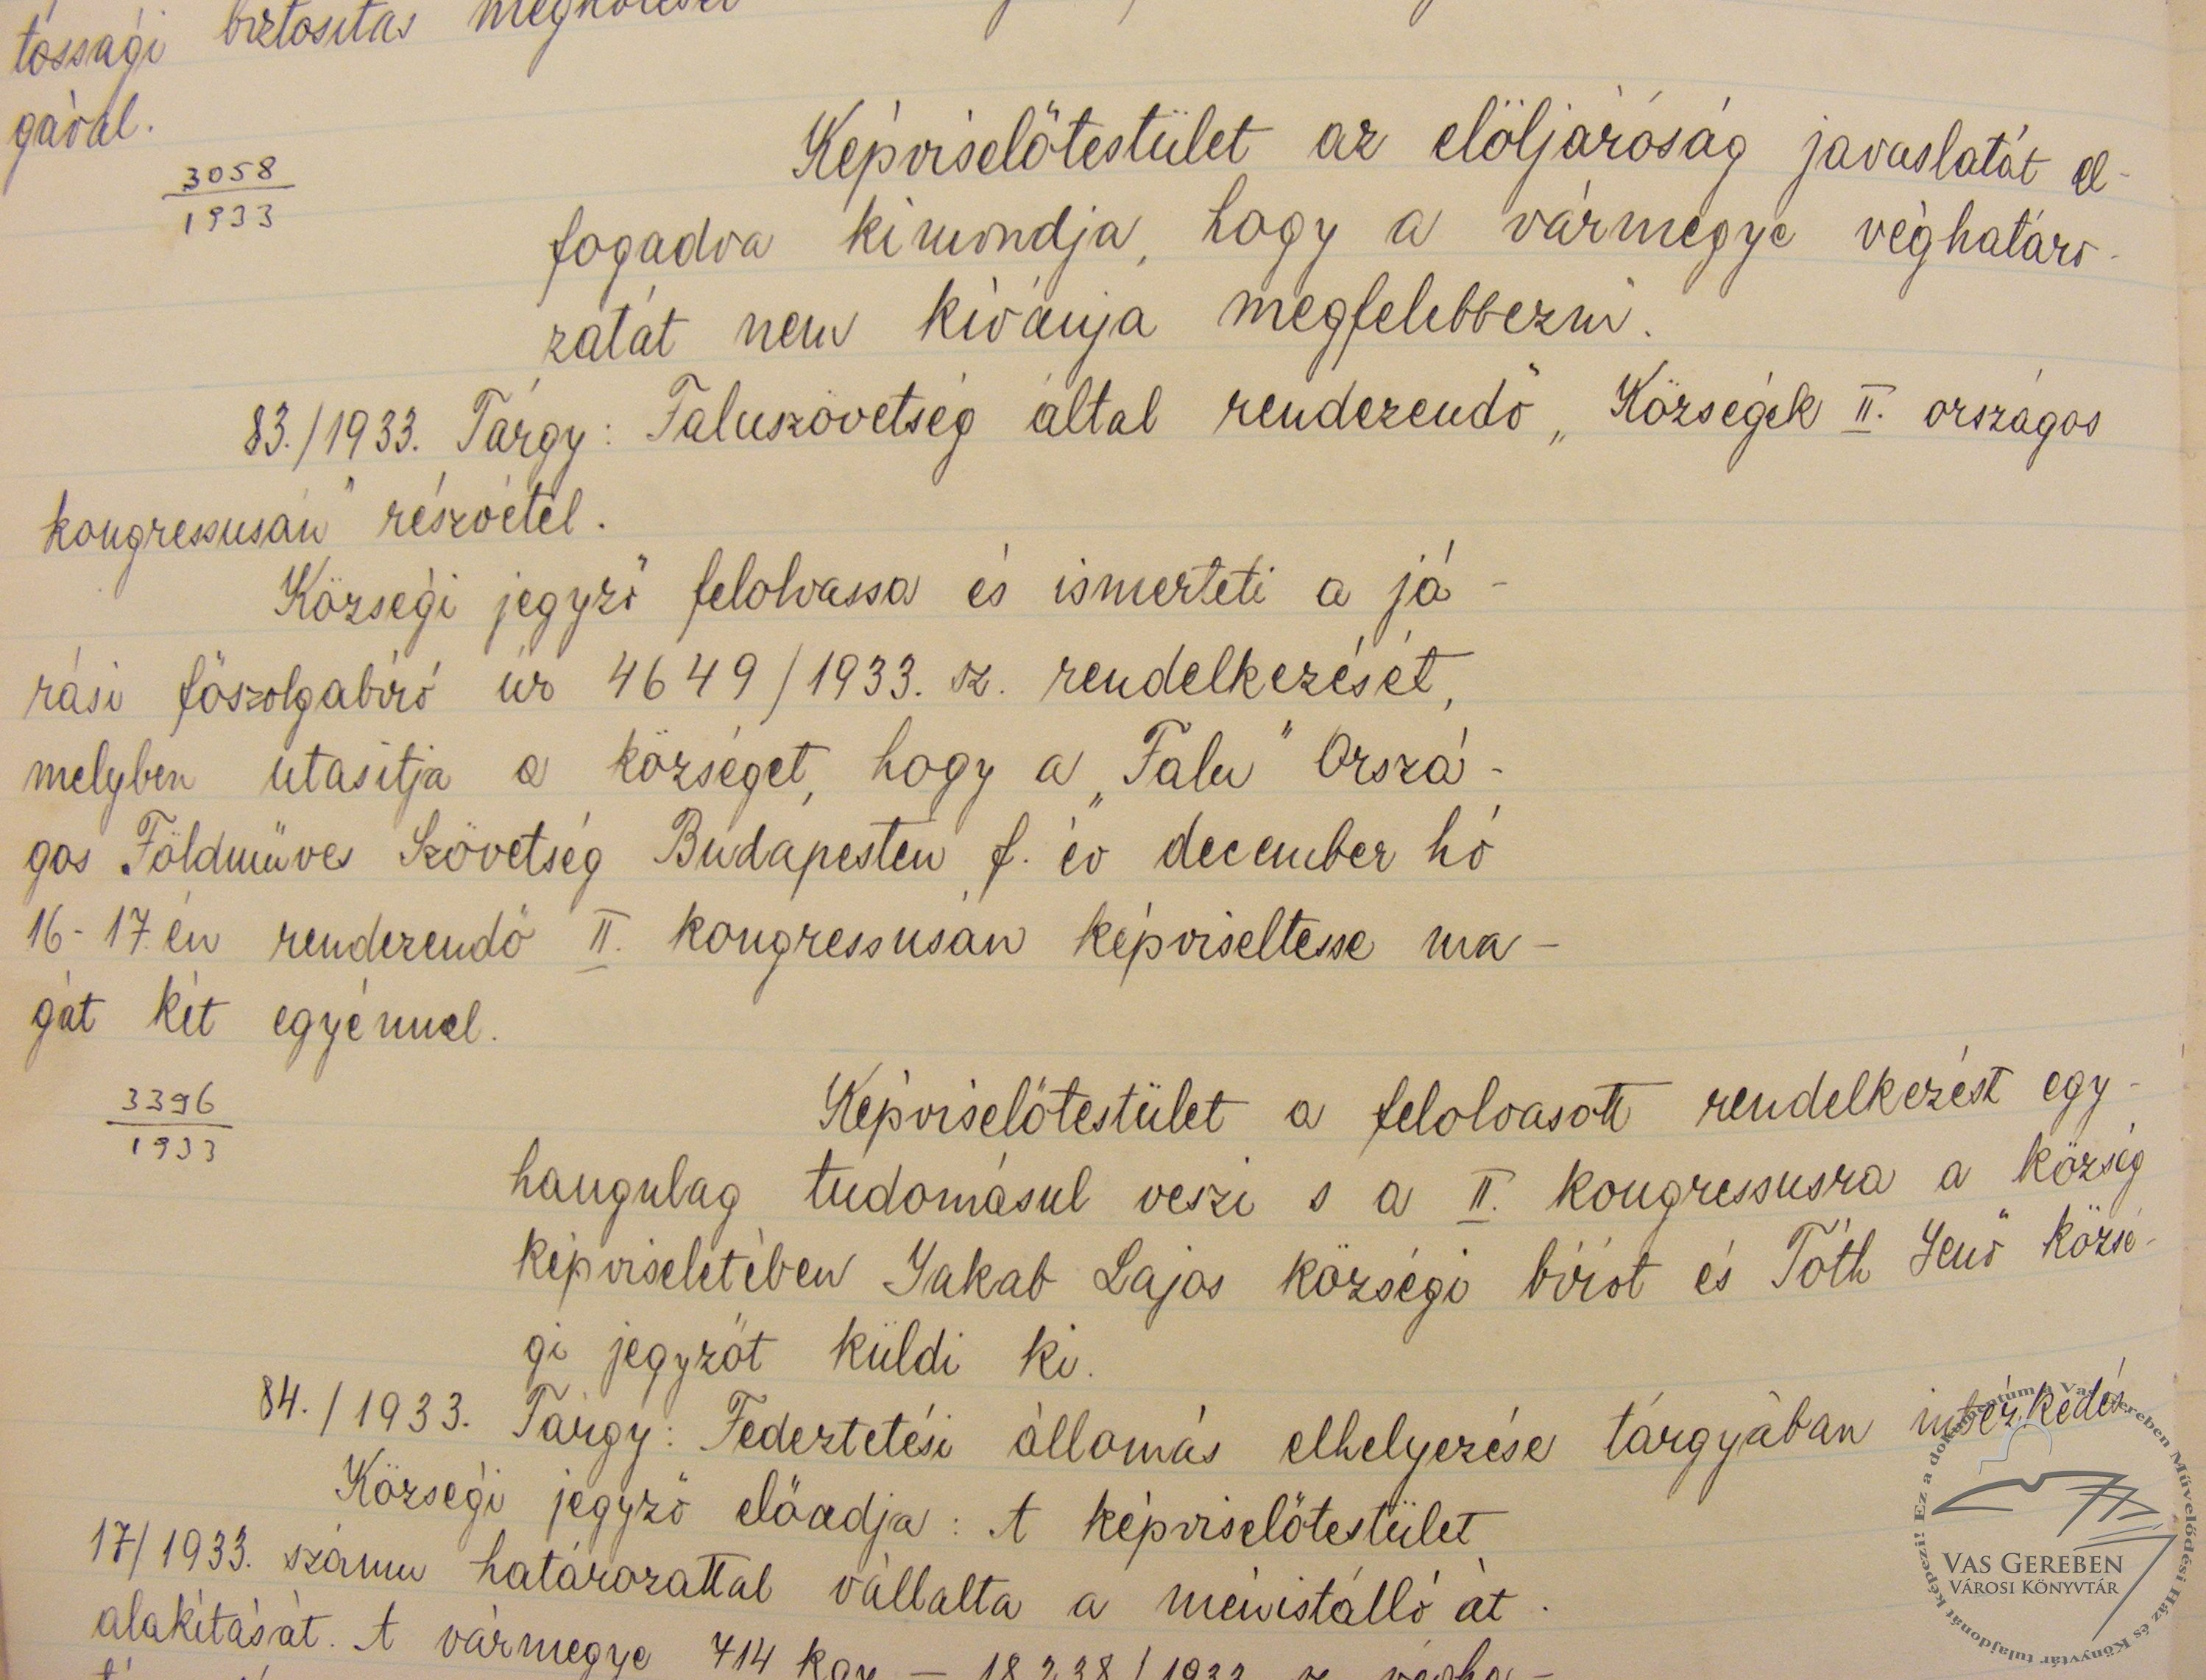 tossági biztosítás
gával.
3058
1933
Képviselőtestület az elöljáróság javaslatát el-
fogadva kimondja, hogy a vármegye véghatáro-
zatát nem kívánja megfelebbezni.
83./1933. Tárgy: Faluszövetség által rendezendő „Községek II. országos
kongressusán" részvétel.
Községi jegyző felolvassa és ismerteti a já-
rási főszolgabíró úr 4649/1933. sz. rendelkezését,
melyben utasítja a községet, hogy a „Falu" Orszá-
gos Földműves Szövetség Budapesten f. év december hó
16-17.én rendezendő II. kongressusán képviseltesse ma-
gát két egyénnel.
3396
1933
Képviselőtestület a felolvasott rendelkezést egy-
hangulag tudomásul veszi s a II. kongressusra a község
képviseletében Jakab Lajos községi bírót és Tóth Jenő közsé-
gi jegyzőt küldi ki.
84./1933. Tárgy: Fedeztetési állomás elhelyezése tárgyában intézkedés
Községi jegyző előadja: A képviselőtestület
17/1933. számu határozattal vállalta a ménistálló át-
alakítását. A vármegye 714 kgy — 18.238/1933. sz. végha-
Ez a dokumentum a Vas Gereben Művelődési Ház és Könyvtár tulajdonát képezi!
VAS GEREBEN
VÁROSI KÖNYVTÁR